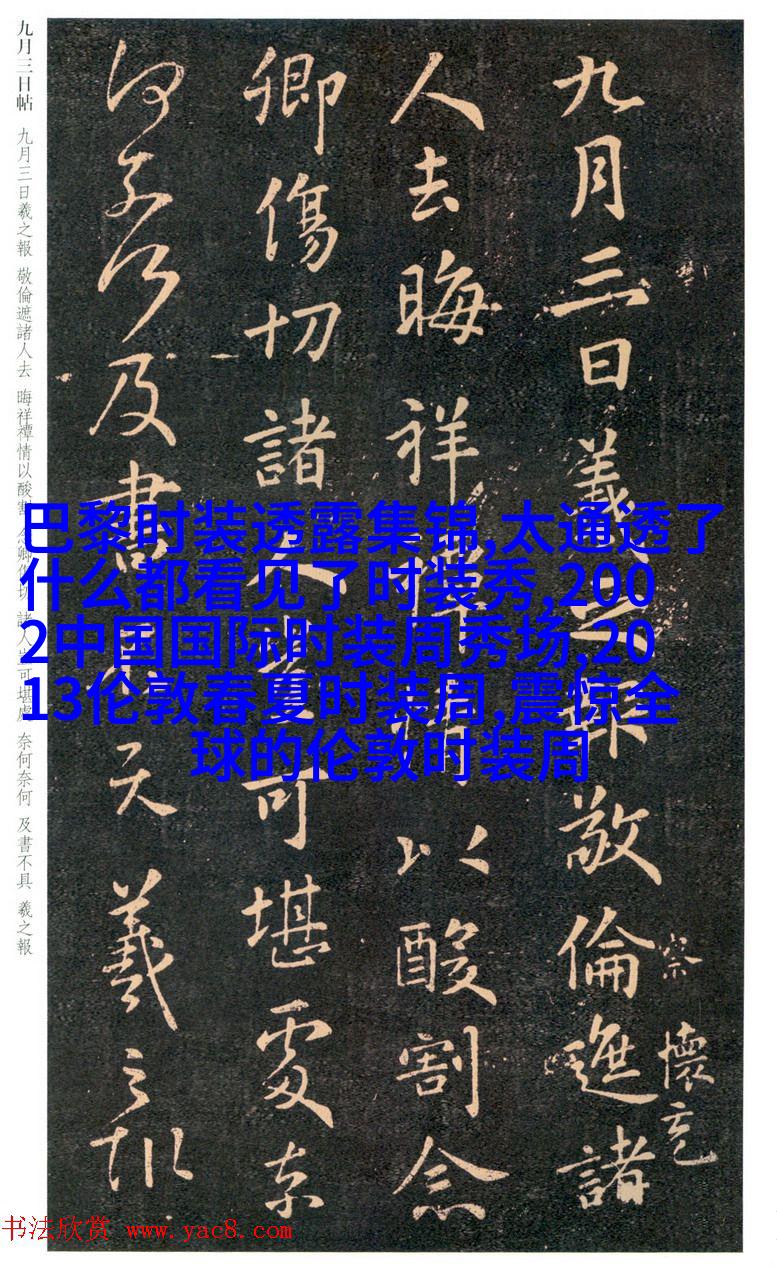 九月三日羲之報敬倫遮諸
察
懷充
人去晦祥禫情以酸割念
卿傷切諸人豈可堪處奈
何奈何及書不具羲之報
九月三日帖 九月三日羲之報 敬倫遮諸人去 晦祥禫情以酸割 念卿傷切 諸人豈可堪處 奈何奈何 及書不具 羲之報
巴黎时装透露集锦,太通透了
什么都看见了时装秀,200
2中国国际时装周秀场,20
13伦敦春夏时装周,震惊全
球的伦敦时装周
书法欣赏 www.yac8.com